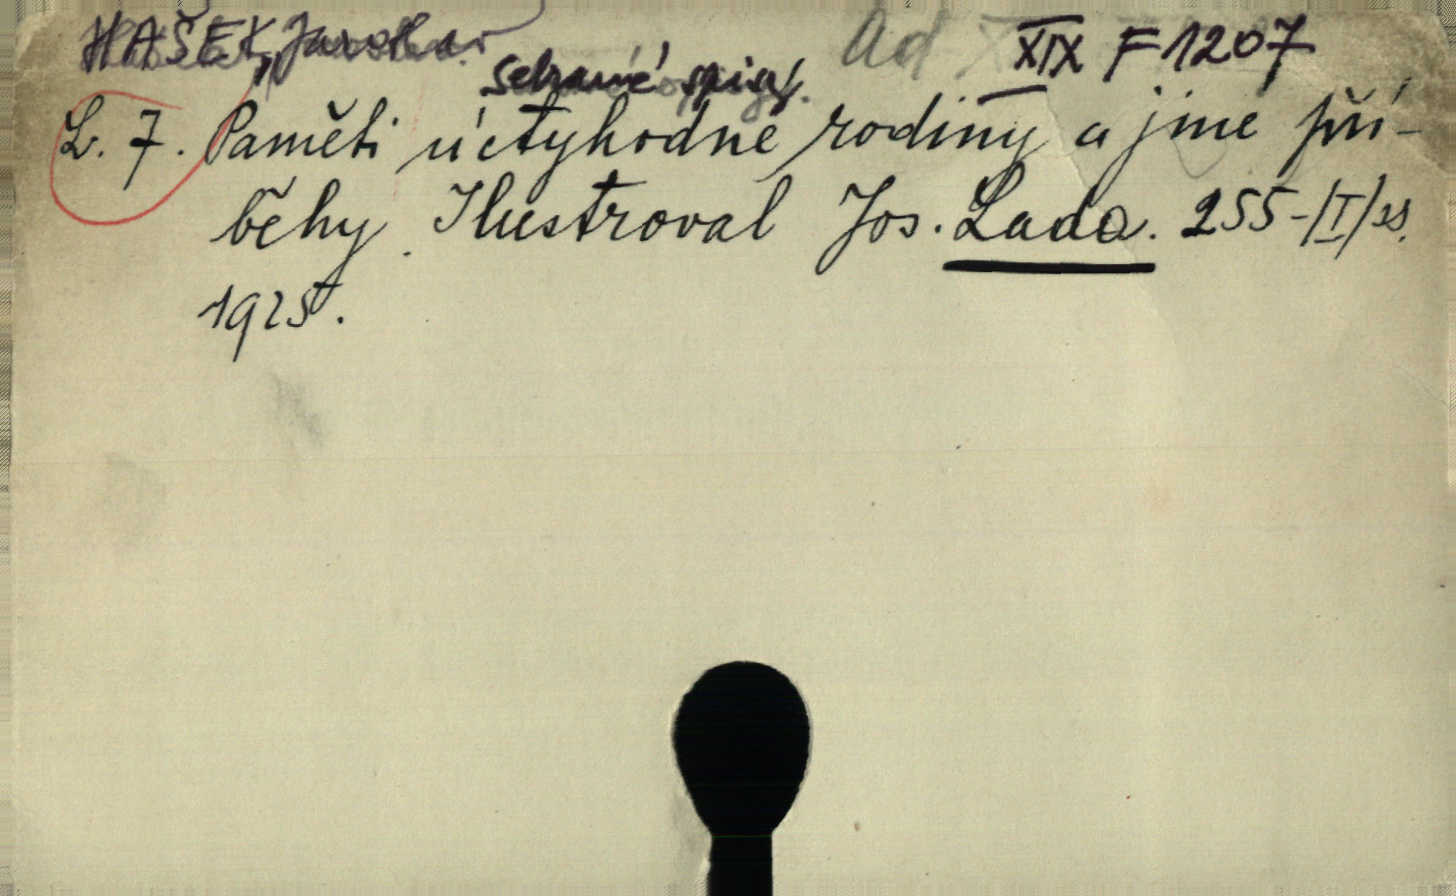 HAŠEK, Jaroslav Sebrané spisy. Ad XIX F 1207
Sv. 7. Paměti úctyhodné rodiny a jiné pří-
běhy. Ilustroval Jos. Lada. 255-/I/ ss.
1925.